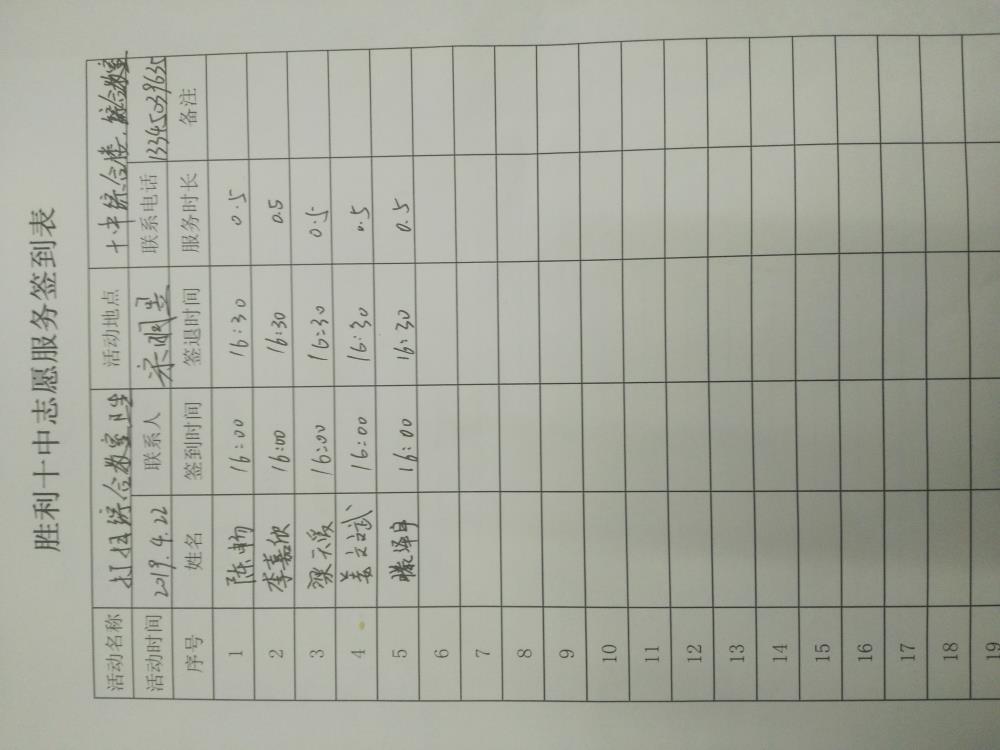 胜利十中志愿服务签到表
活动名称 打扫综合教室卫生 活动地点 十中综合楼.综合教室
活动时间 2019.4.22 联系人 宋明星 联系电话 13345039635
序号 姓名 签到时间 签退时间 服务时长 备注
1 陈畅 16:00 16:30 0.5
2 李嘉欣 16:00 16:30 0.5
3 梁天爱 16:00 16:30 0.5
4 姜文斌 16:00 16:30 0.5
5 滕泽宇 16:00 16:30 0.5
6
7
8
9
10
11
12
13
14
15
16
17
18
19